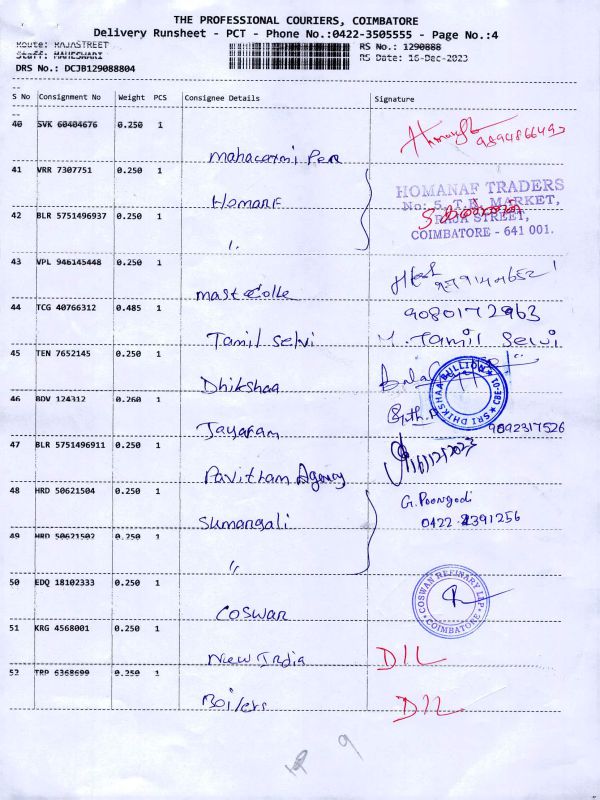 THE PROFESSIONAL COURIERS, COIMBATORE
Delivery Runsheet - PCT - Phone No.:0422-3505555 - Page No.:4
Route: RAJASTREET
RS No.: 1290888
Staff: MAHESWARI
RS Date: 16-Dec-2023
DRS No.: DCJB129088804
S No Consignment No Weight PCS Consignee Details Signature
40 SVK 60404676 0.250 1
9894866492
41 VRR 7307751 0.250 1
HOMANAF TRADERS
No: 5, T.K. MARKET,
42 BLR 5751496937 0.250 1
RAJA STREET,
COIMBATORE - 641 001.
"
43 VPL 946145448 0.250 1
44 TCG 40766312 0.485 1
9080172963
Tamil Selvi M. Tamil Selvi
45 TEN 7652145 0.250 1
Dhikshaa
SRI DHIKSHAA BULLION CBE-01
46 BDV 124312 0.260 1
Jayaram
9092317526
47 BLR 5751496911 0.250 1
16/12/2023
Pavitham Agency
48 HRD 50621504 0.250 1
Sumangali
G. Poongodi
0422 2391256
49 HRD 50621502 0.250 1
"
50 EDQ 18102333 0.250 1
Coswan
COSWAN REFINARY LLP COIMBATORE
51 KRG 4568001 0.250 1
New India DIL
52 TRP 6368699 0.250 1
Boilers DIL
9